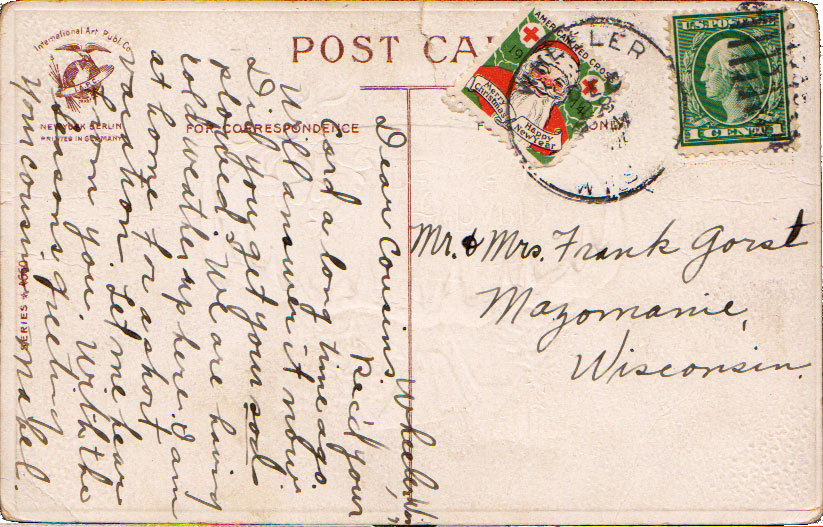 International Art Publ. Co.
NEW YORK BERLIN
PRINTED IN GERMANY
POST CA
FOR CORRESPONDENCE
ONLY
SERIES № 4660
AMERICAN RED CROSS
19
Merry Christmas
Happy New Year
U.S. POSTAGE
1 CENT 1
LER
WIS
Wheeler, Wis,
Dear Cousins.
Rec'd your
Card a long time ago.
Will answer it now.
Did you get your sod
plowed. We are having
cold weather up here. I am
at home for a short
vacation. Let me hear
from you. With the
seasons greeting
Your cousin Mabel.
Mr. & Mrs. Frank Gorst
Mazomanie,
Wisconsin.